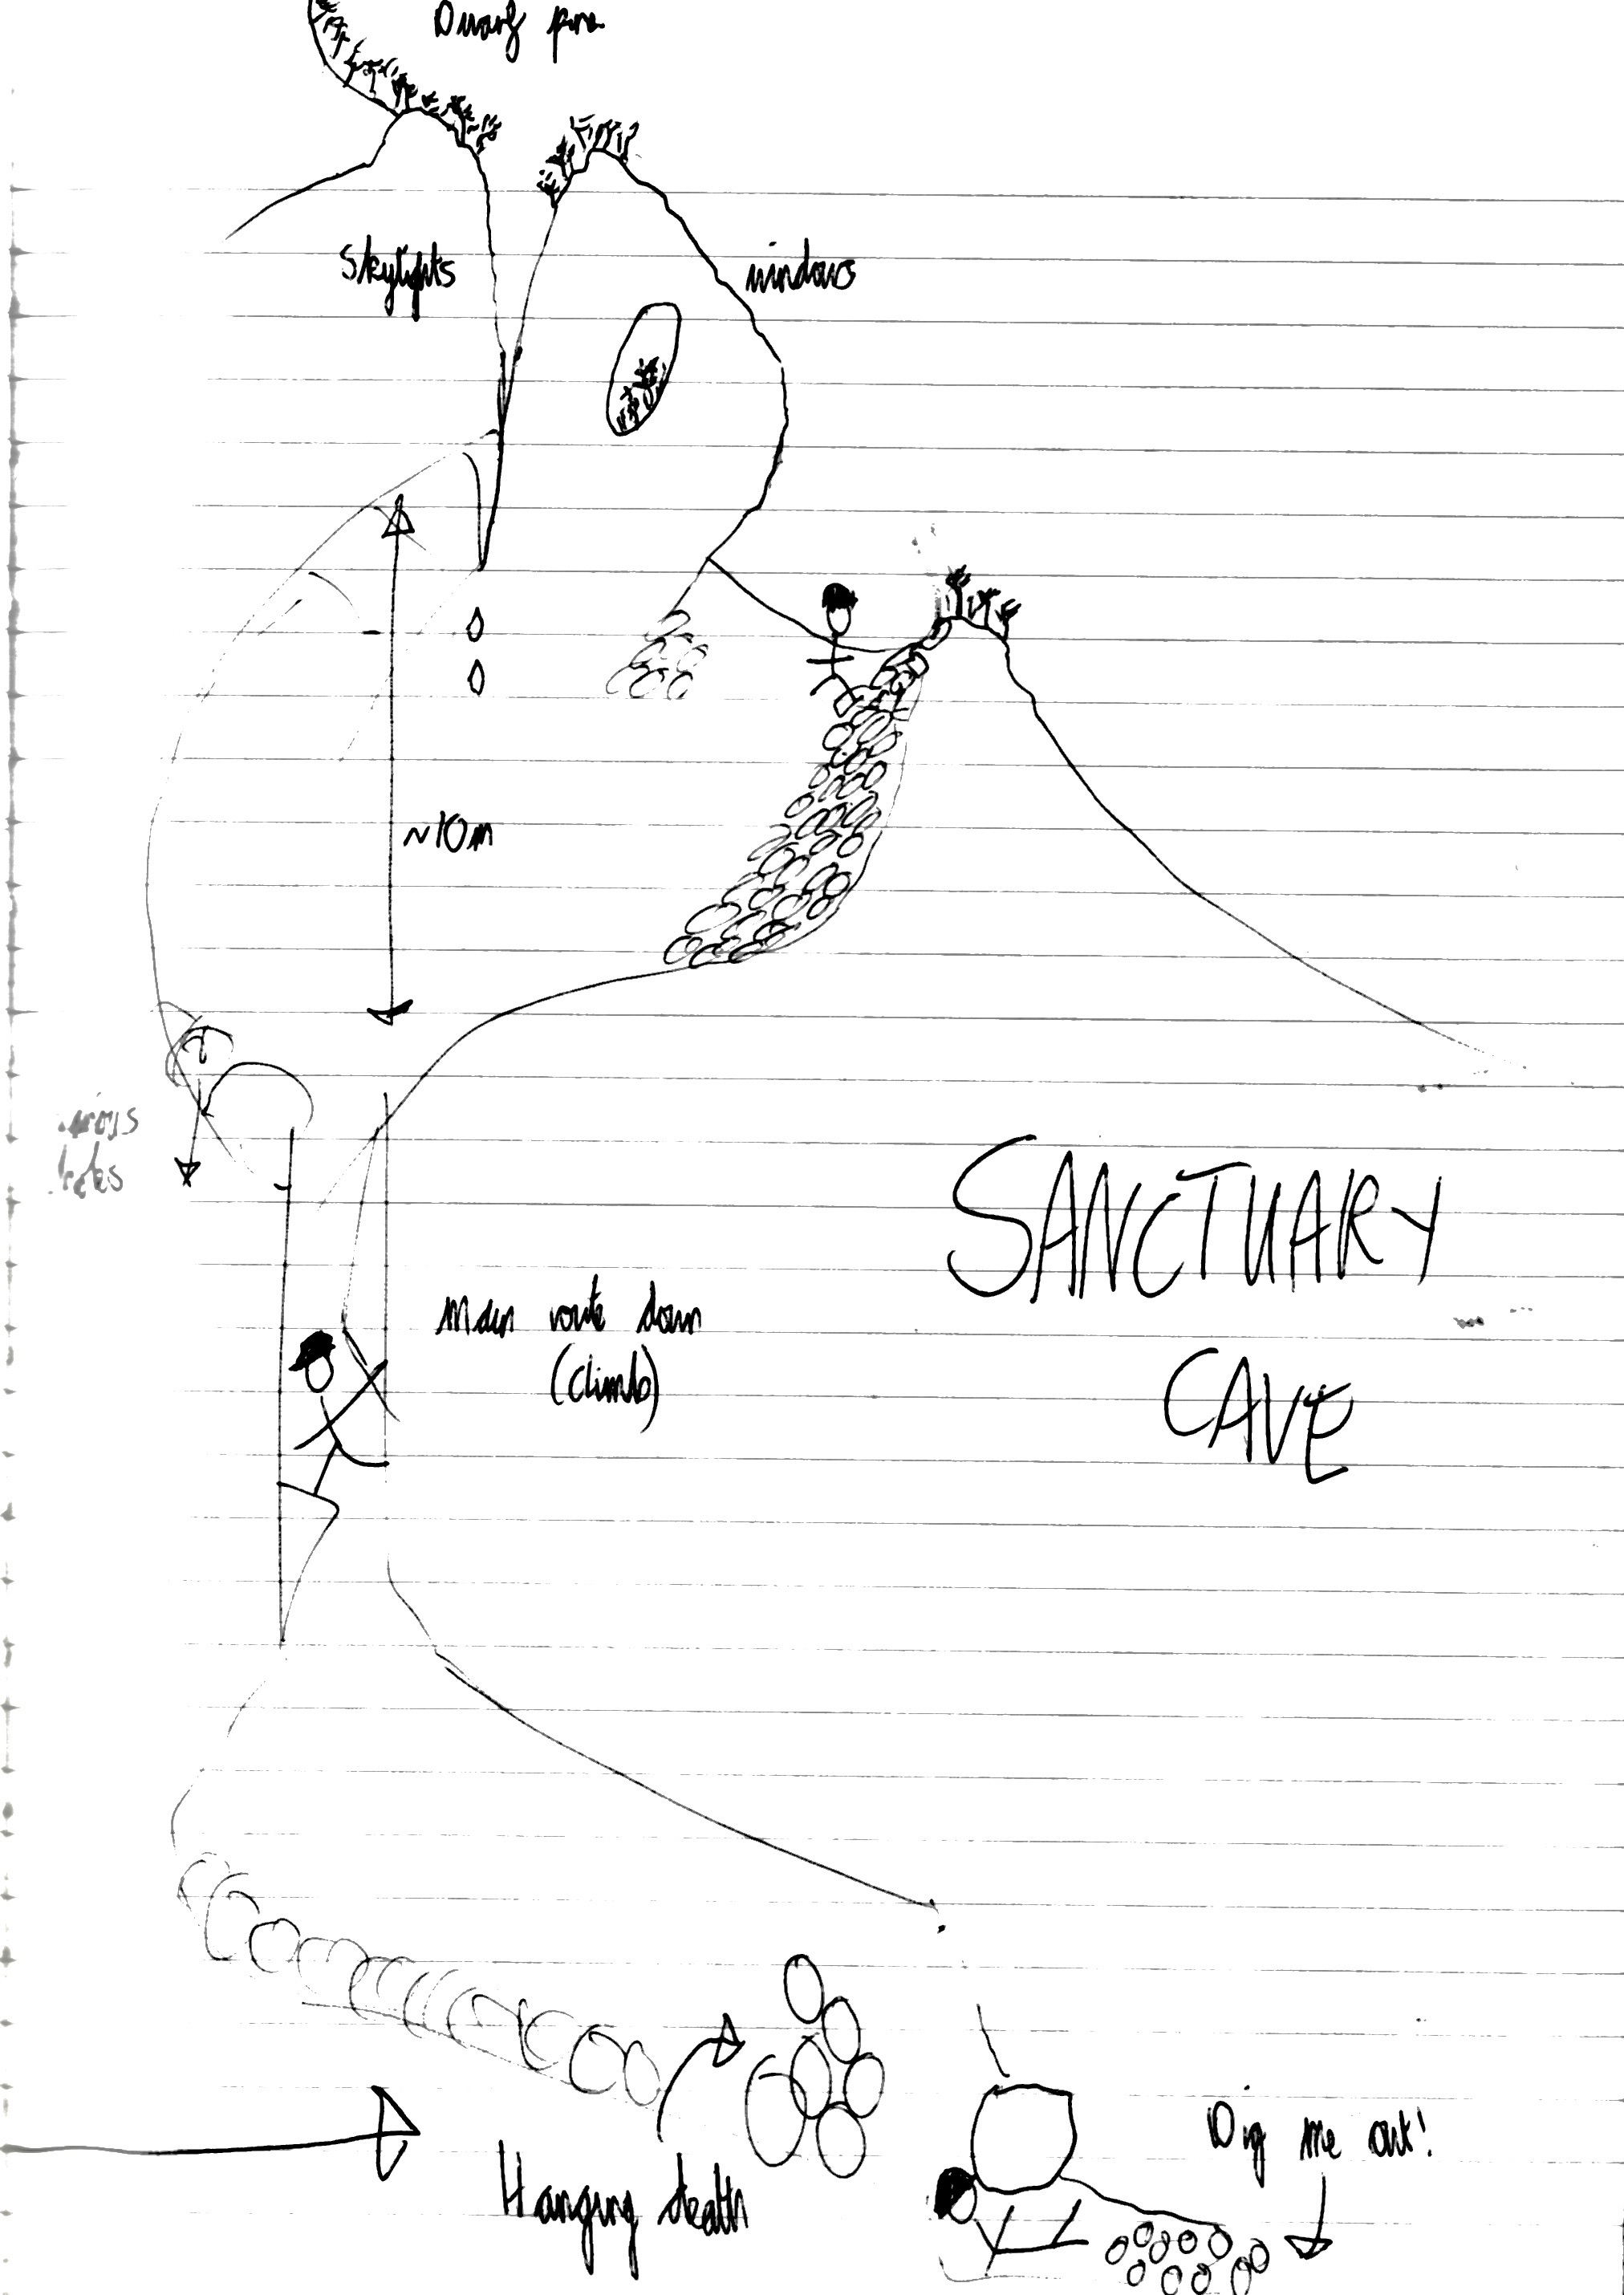 Dwarf pine
Skylights
windows
~10m
SANCTUARY
CAVE
Main route down
(climb)
Hanging death
Dig me out!